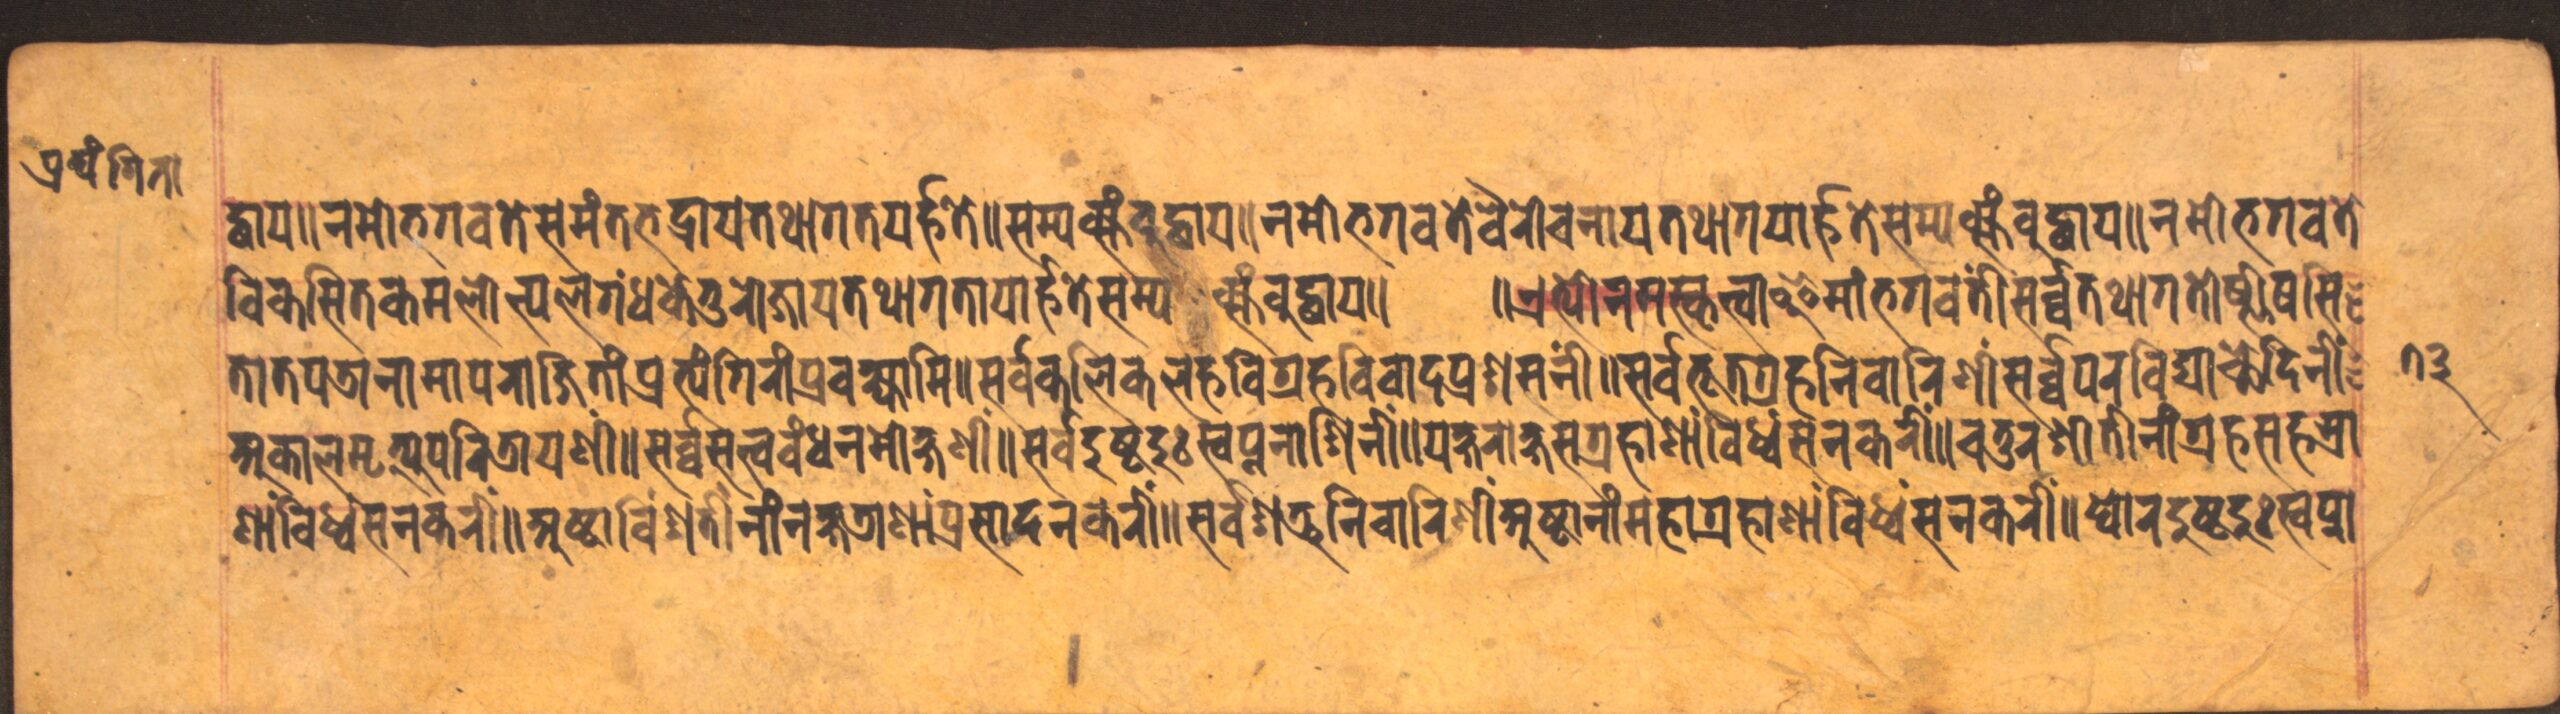 प्रत्यंगिरा
द्धाय॥नमोभगवतेसमंतभद्रायतथागतयर्हते॥सम्यक्संबुद्धाय॥नमोभगवतेवैरोचनायतथागयार्हतेसम्यक्संबुद्धाय॥नमोभगवते
विकसितकमलोत्पलगंधकेतुराजायतथागतायार्हतेसम्यक्संबुद्धाय॥ ॥एभ्योनमस्कृत्वाइमांभगवतींसर्व्वतथागतोष्णीषसि
तातपत्रानामापराजितांप्रत्यंगिरांप्रवक्ष्यामि॥सर्वकलिकलहविग्रहविवादप्रशसनीं॥सर्वभूतग्रहनिवारिणींसर्व्वपरविद्याच्छेदिनीं
अकालमृत्युपरित्रायणीं॥सर्व्वसत्त्वबंधनमोक्षणीं॥सर्वदुष्टदुःस्वप्ननाशिनीं॥यक्षराक्षसग्रहाणांविध्वंसनकरीं॥चतुरशीतीनांग्रहसहस्रा
णांविध्वंसनकरीं॥अष्टाविंशतीनांनक्षत्राणांप्रसादनकरीं॥सर्वशत्रुनिवारिणींअष्टानांमहाग्रहाणांविध्वंसनकरीं॥घोरदुष्टदुःस्वप्ना
१३